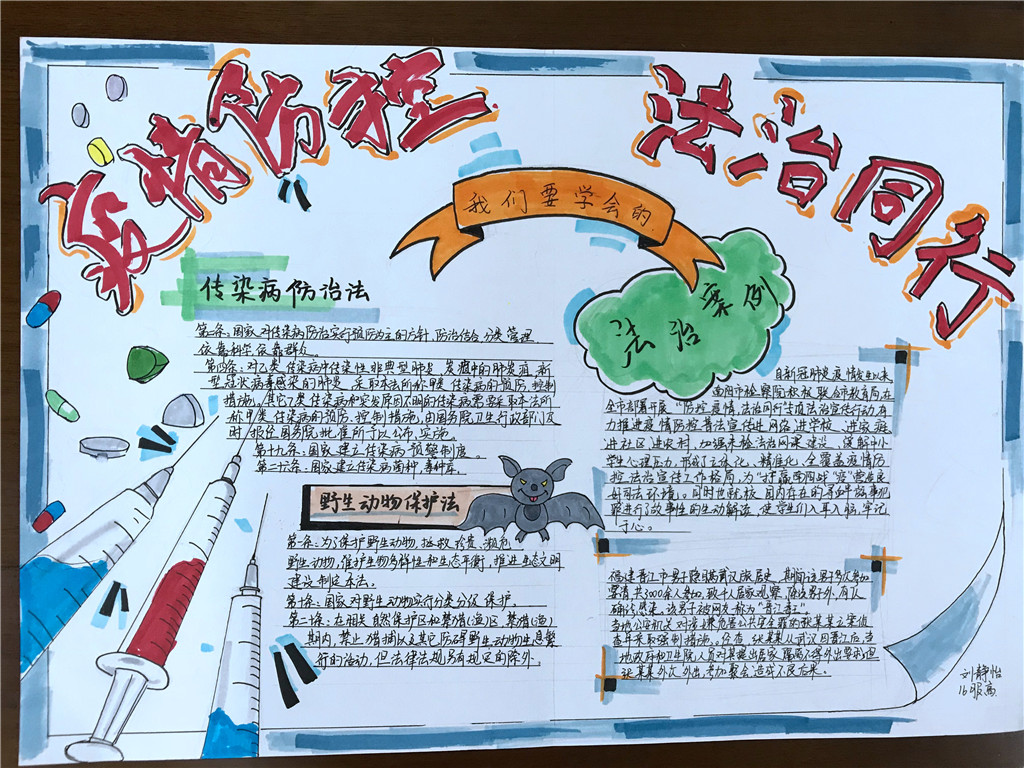 疫情防控
法治同行
我们要学会的
传染病防治法
第二条:国家对传染病防治实行预防为主的方针,防治结合、分类管理、
依靠科学、依靠群众。
第四条:对乙类传染病中传染性非典型肺炎、炭疽中的肺炭疽,新
型冠状病毒感染的肺炎,采取本法所称甲类传染病的预防、控制
措施。其它乙类传染病和突发原因不明的传染病需要采取本法所
称甲类传染病的预防、控制措施,由国务院卫生行政部门及
时报经国务院批准后予以公布、实施。
第十九条:国家建立传染病预警制度。
第二十六条:国家建立传染病菌种、毒种库
野生动物保护法
第一条:为了保护野生动物,拯救珍贵、濒危
野生动物,维护生物多样性和生态平衡,推进生态文明
建设,制定本法。
第十条:国家对野生动物实行分类分级保护。
第二十条:在相关自然保护区和禁猎(渔)区、禁猎(渔)
期内,禁止猎捕以及其它妨碍野生动物生息繁
衍的活动,但法律法规另有规定的除外。
法治案例
自新冠肺炎疫情发生以来,
南阳市检察院积极联合市教育局在
全市部署开展“防控疫情,法治同行”专项法治宣传行动,有
力推进疫情防控普法宣传进网络、进学校、进家庭、
进社区、进农村,加强未检法治网课建设,缓解中小
学生心理压力,形成了立体化、精准化、全覆盖疫情防
控法治宣传工作格局,为“打赢
营造良
好司法环境。同时也就校园内存在的
犯罪进行了故事性的生动解读,使学生们入耳入脑,牢记
于心。
福建晋江市男子隐瞒武汉旅居史,期间该男多次参加
宴请,共3000余人参加,致千人居家观察,除该男子外,有人
确诊感染,该男子被网友称为“晋江毒王”。
当地公安机关对涉嫌危害公共安全罪的张某某立案侦
查并采取强制措施。经查,张某某从武汉回晋江后,当
地政府和卫生院人员对其提出居家隔离
外出要求,但
张某某多次外出,参加聚会,造成不良后果。
刘静怡